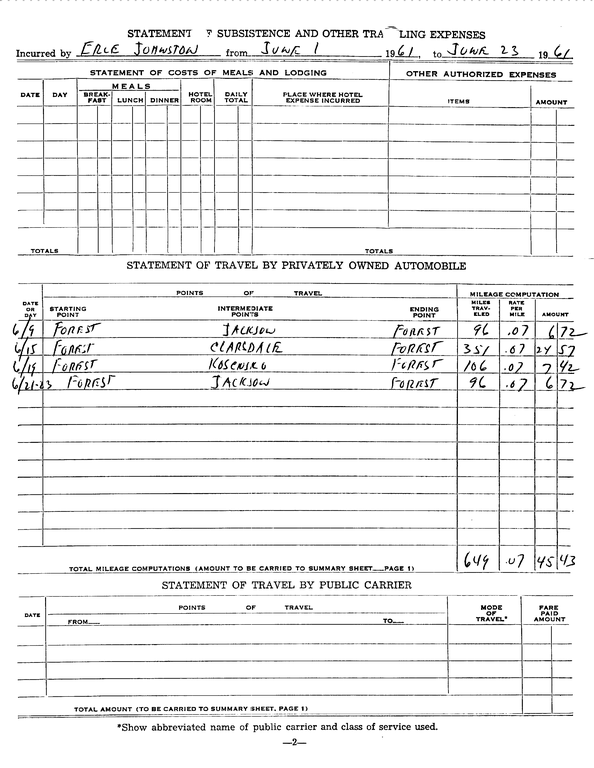 STATEMENT F SUBSISTENCE AND OTHER TRA LING EXPENSES
Incurred by ERLE JOHNSTON from JUNE 1 1961, to JUNE 23 1961
STATEMENT OF COSTS OF MEALS AND LODGING OTHER AUTHORIZED EXPENSES
DATE DAY MEALS BREAK-FAST LUNCH DINNER HOTEL ROOM DAILY TOTAL PLACE WHERE HOTEL EXPENSE INCURRED ITEMS AMOUNT
TOTALS TOTALS
STATEMENT OF TRAVEL BY PRIVATELY OWNED AUTOMOBILE
POINTS OF TRAVEL MILEAGE COMPUTATION
DATE OR DAY STARTING POINT INTERMEDIATE POINTS ENDING POINT MILES TRAV-ELED RATE PER MILE AMOUNT
6/9 FOREST JACKSON FOREST 96 .07 6 72
6/15 FOREST CLARSDALE FOREST 351 .07 24 57
6/19 FOREST KOSCUSKO FOREST 106 .07 7 42
6/21-23 FOREST JACKSON FOREST 96 .07 6 72
TOTAL MILEAGE COMPUTATIONS (AMOUNT TO BE CARRIED TO SUMMARY SHEET PAGE 1) 649 .07 45 43
STATEMENT OF TRAVEL BY PUBLIC CARRIER
DATE POINTS OF TRAVEL MODE OF TRAVEL* FARE PAID AMOUNT
FROM TO
TOTAL AMOUNT (TO BE CARRIED TO SUMMARY SHEET, PAGE 1)
*Show abbreviated name of public carrier and class of service used.
—2—